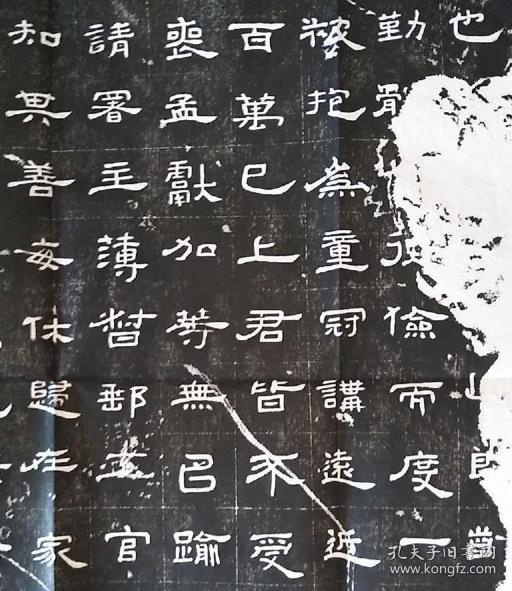 也 即
勤 儉而度一
抱為童冠講遠近
百萬已上君皆不受
喪孟獻加等無以踰
請署主薄督郵五官
知其善每休歸在家
孔夫子旧书网
www.kongfz.com